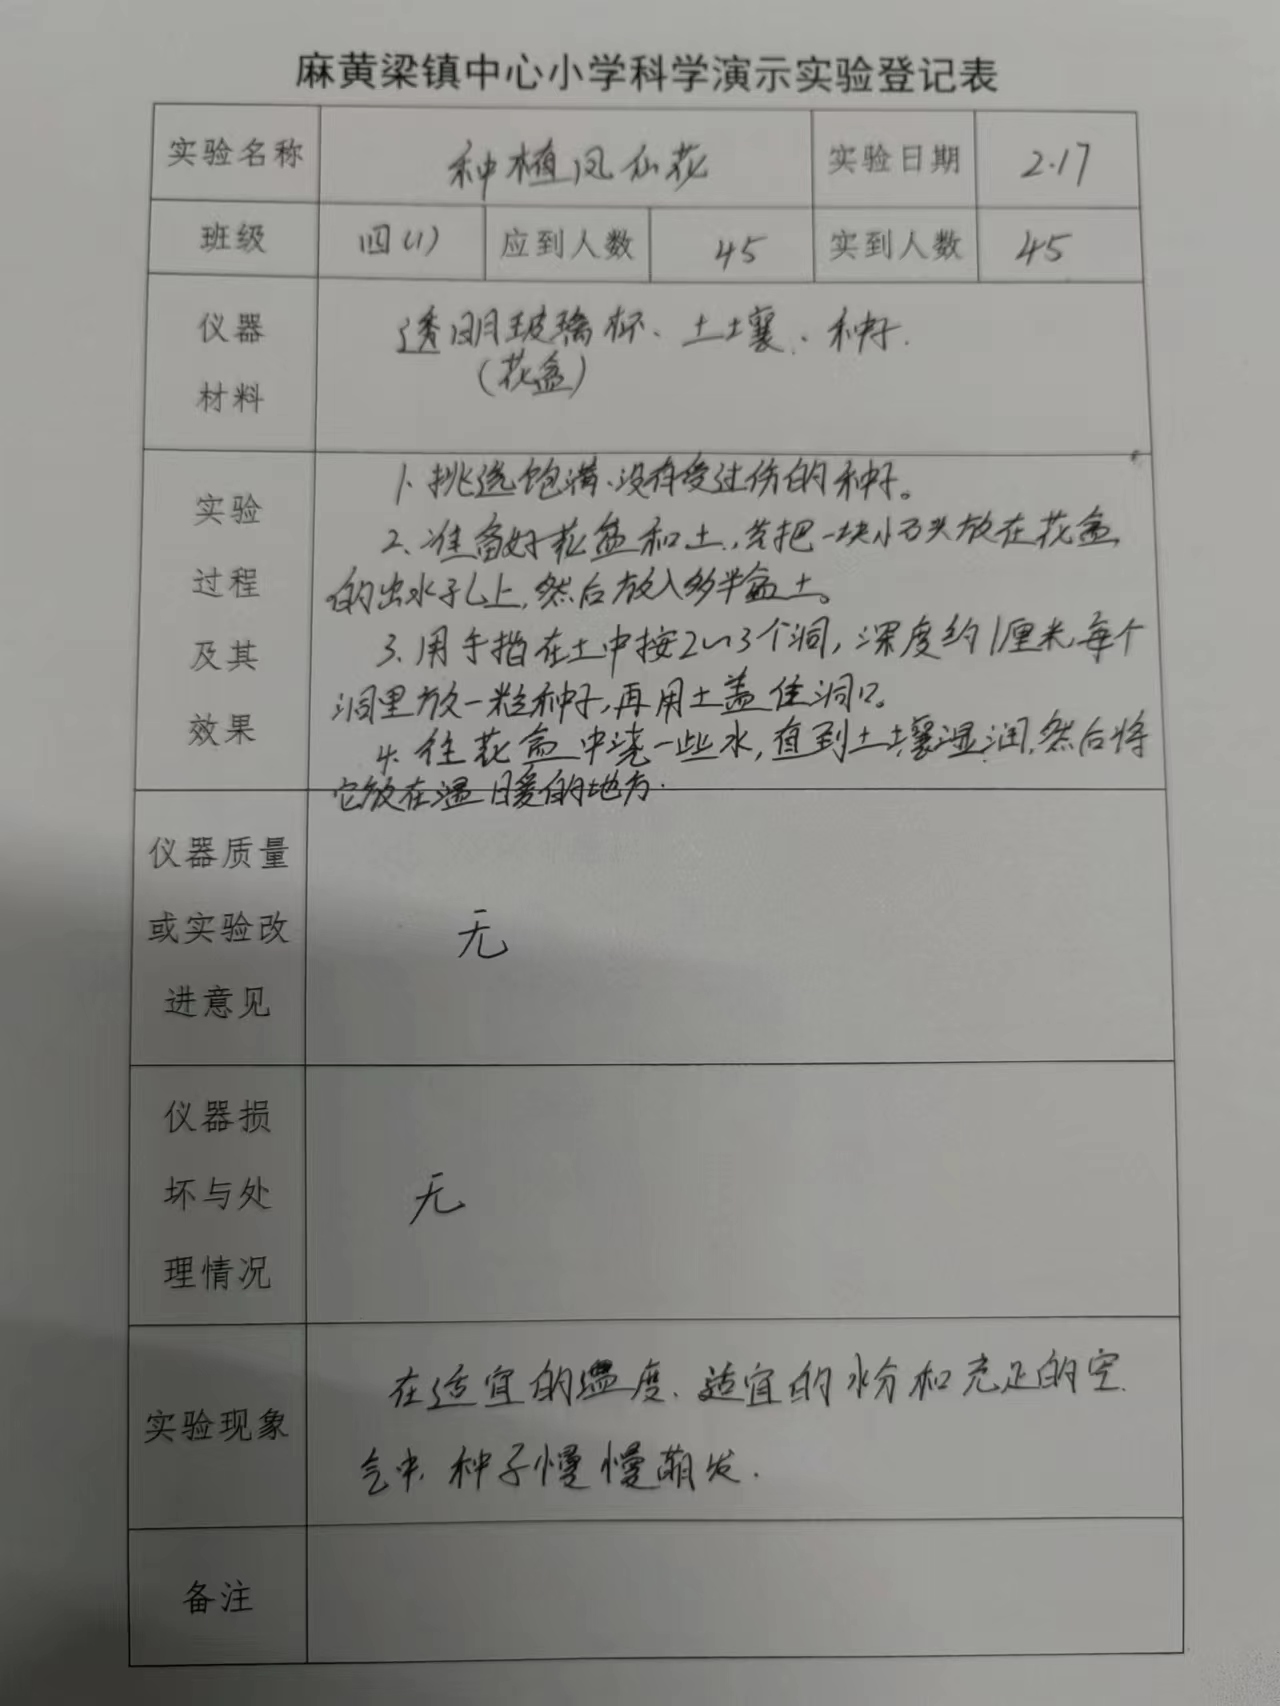 麻黄梁镇中心小学科学演示实验登记表
实验名称 种植凤仙花 实验日期 2.17
班级 四(1) 应到人数 45 实到人数 45
仪器 透明玻璃杯、土壤、种子.
(花盆)
材料
1、挑选饱满、没有受过伤的种子。
实验
2、准备好花盆和土,先把一块小石头放在花盆
过程 的出水孔上,然后放入多半盆土。
3、用手指在土中按2~3个洞,深度约1厘米,每个
及其
洞里放一粒种子,再用土盖住洞口。
效果
4、往花盆中浇一些水,直到土壤湿润,然后将
它放在温暖的地方.
仪器质量
或实验改 无
进意见
仪器损
坏与处 无
理情况
在适宜的温度、适宜的水分和充足的空
实验现象
气中,种子慢慢萌发.
备注